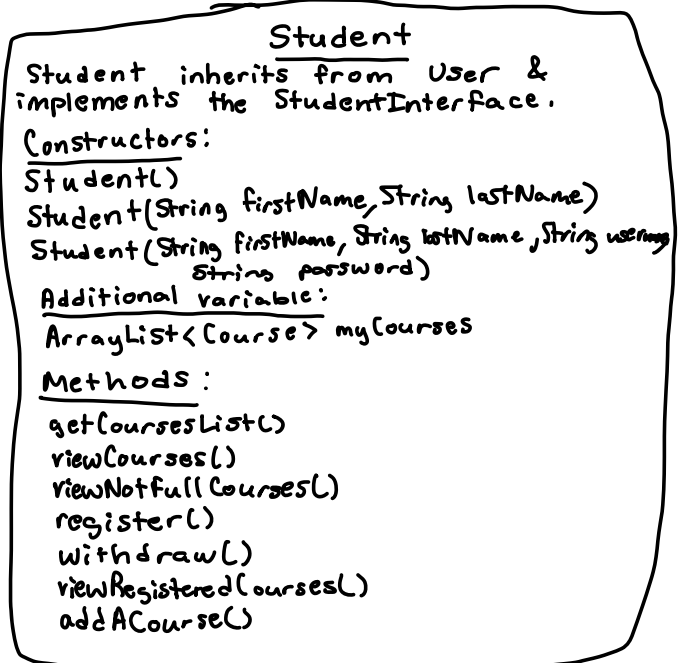 Student
Student inherits from User &
implements the StudentInterface.
Constructors:
Student()
Student(String firstName, String lastName)
Student(String firstName, String lastName, String
String password)
Additional variable:
ArrayList<Course> myCourses
Methods:
getCoursesList()
viewCourses()
viewNotFullCourses()
register()
withdraw()
viewRegisteredCourses()
addACourse()